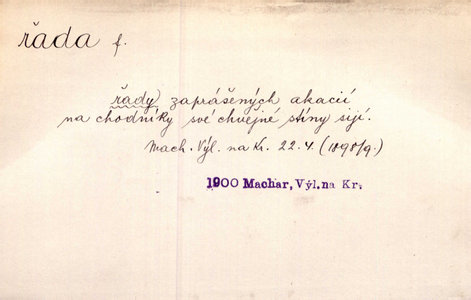 řada f.
řady zaprášených akacií
na chodníky své chvějné stíny sijí.
Mach. Výl. na Kr. 22.4. (1898/9.)
1900 Machar, Výl. na Kr.